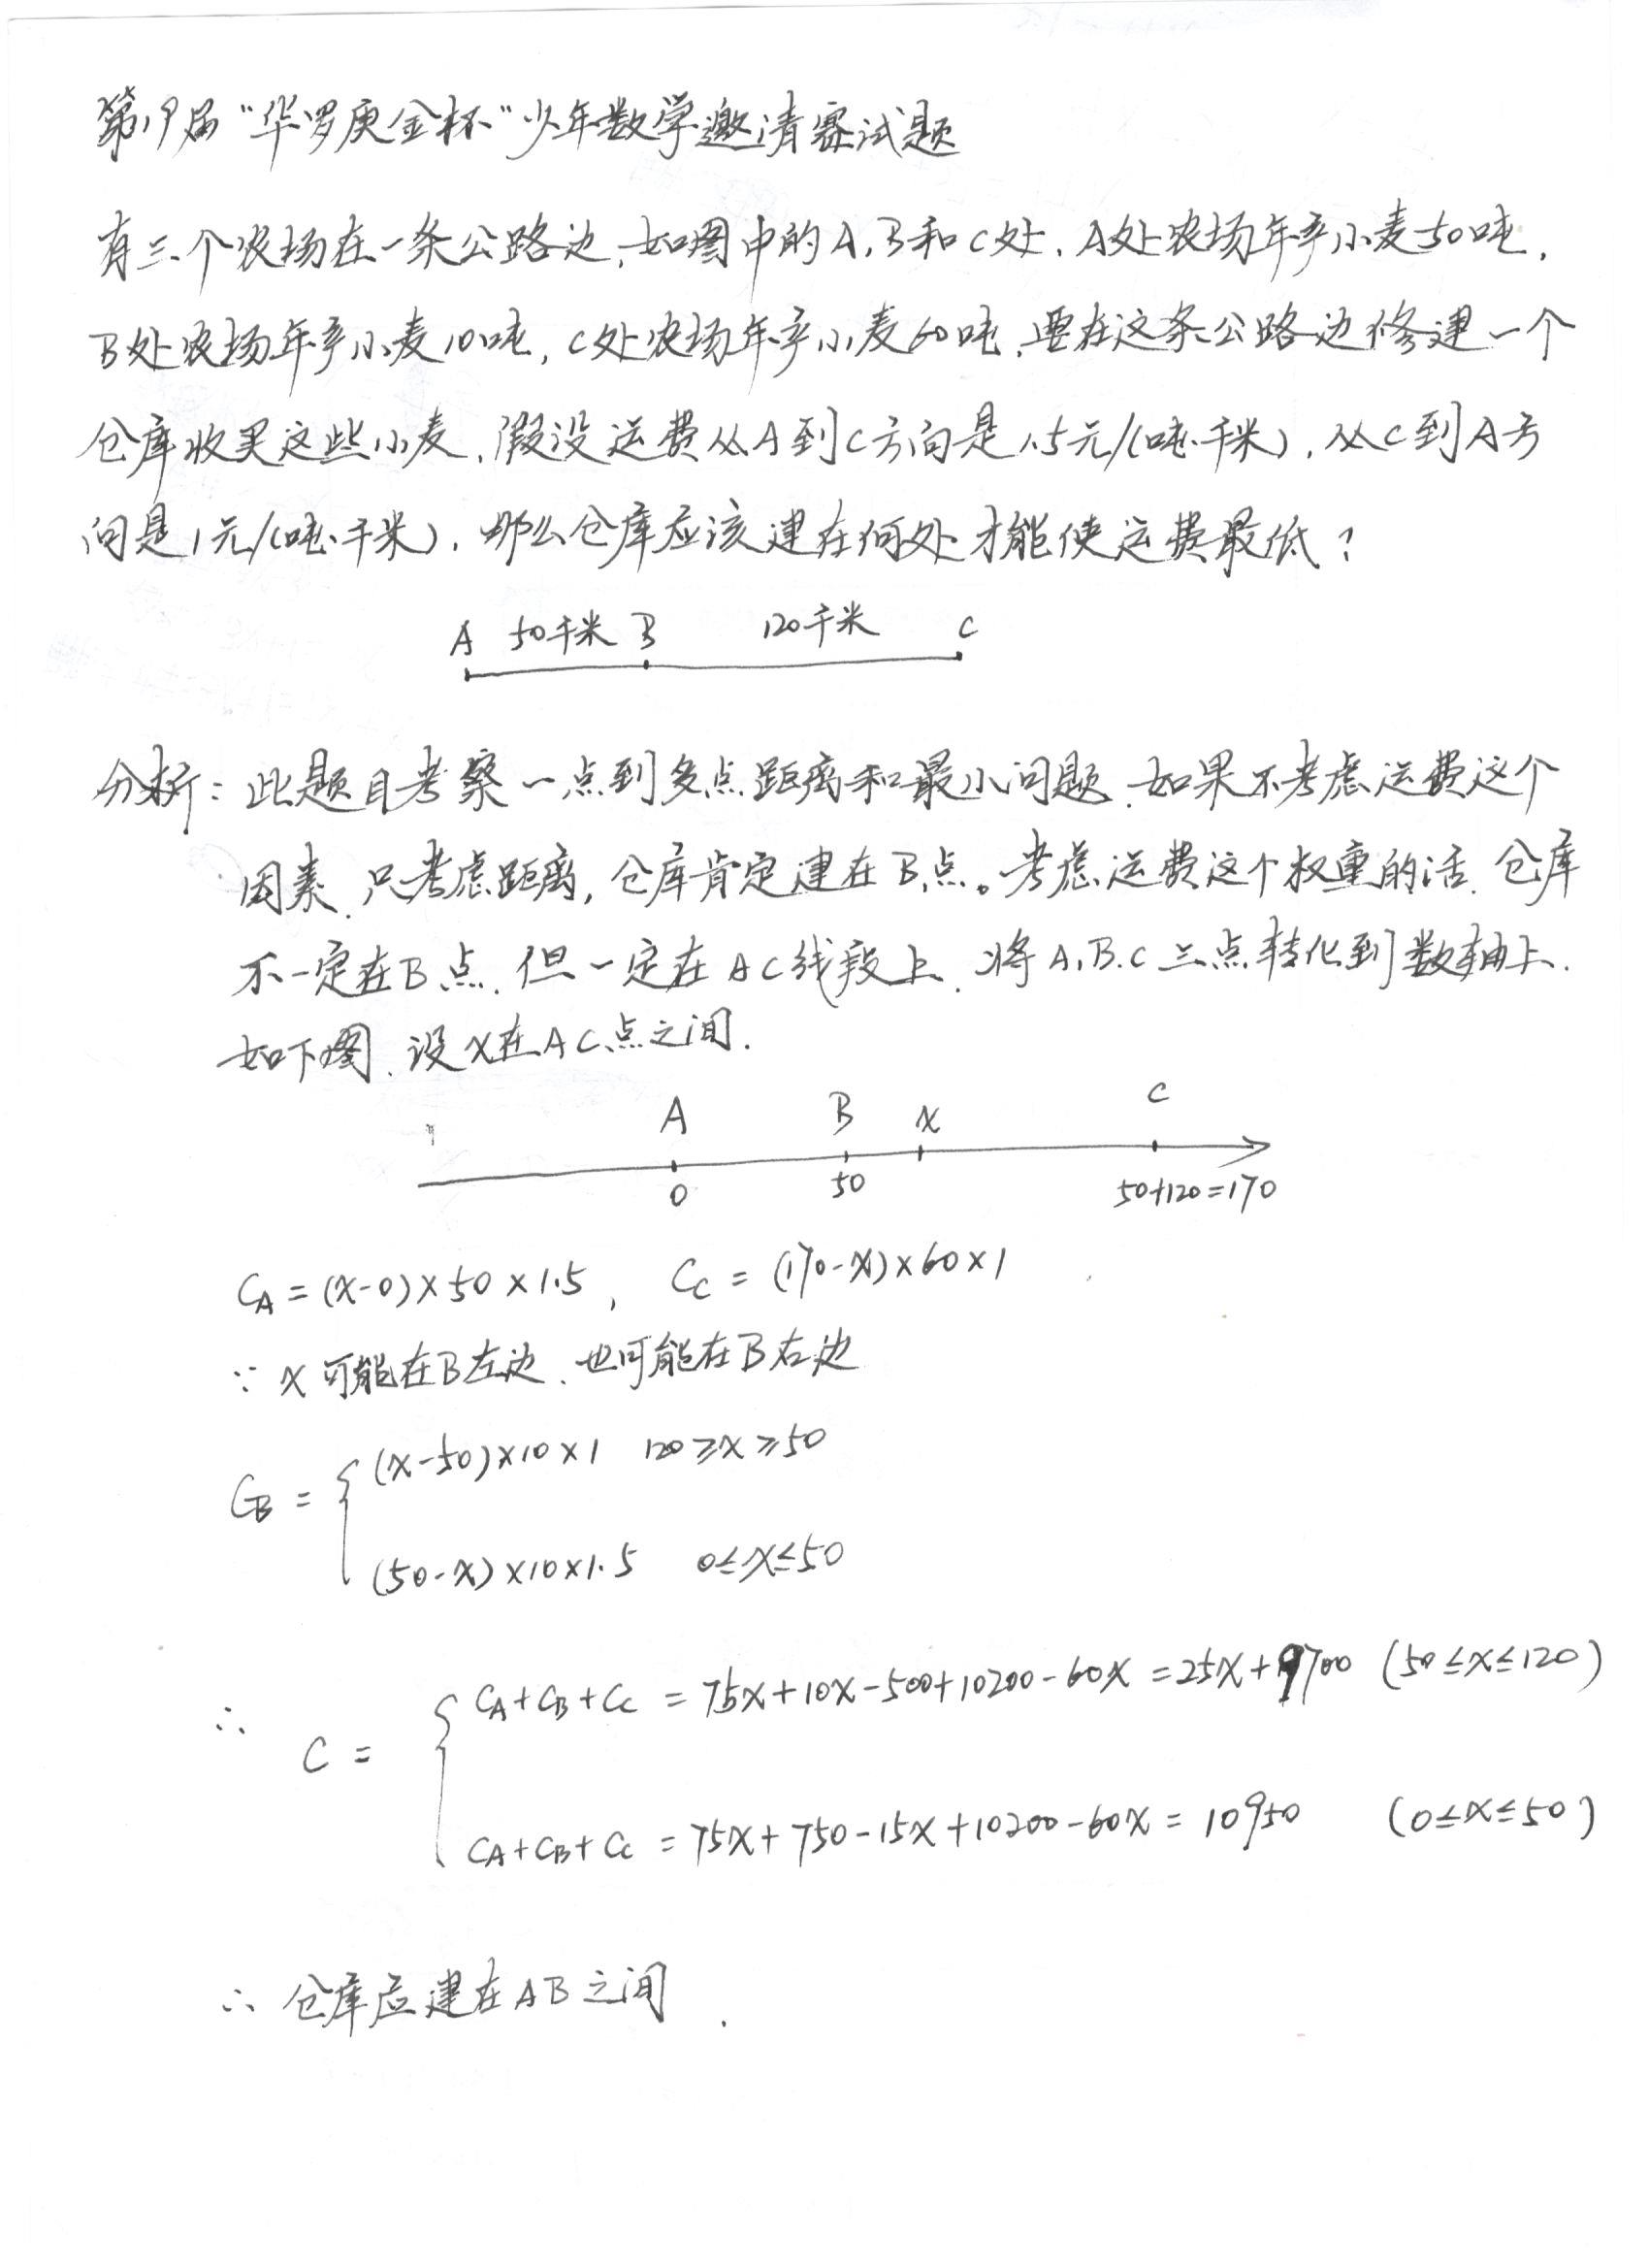 第19届“华罗庚金杯”少年数学邀请赛试题
有三个农场在一条公路边,如图中的A,B和C处.A处农场年产小麦50吨,
B处农场年产小麦10吨,C处农场年产小麦60吨.要在这条公路边修建一个
仓库收买这些小麦.假设运费从A到C方向是1.5元/(吨·千米),从C到A方
向是1元/(吨·千米).那么仓库应该建在何处才能使运费最低?
A 50千米 B 120千米 C
分析:此题目考察一点到多点距离和最小问题.如果不考虑运费这个
因素.只考虑距离,仓库肯定建在B点。考虑运费这个权重的话.仓库
不一定在B点.但一定在AC线段上.将A,B.C三点转化到数轴上.
如下图.设x在AC点之间.
A B x C
0 50 50+120=170
C_A=(x-0)×50×1.5, C_C=(170-x)×60×1
∵x可能在B左边.也可能在B右边
C_B={(x-50)×10×1 120≥x≥50
(50-x)×10×1.5 0≤x≤50
∴ C={C_A+C_B+C_C=75x+10x-500+10200-60x=25x+9700 (50≤x≤120)
C_A+C_B+C_C=75x+750-15x+10200-60x=10950 (0≤x≤50)
∴仓库应建在AB之间.